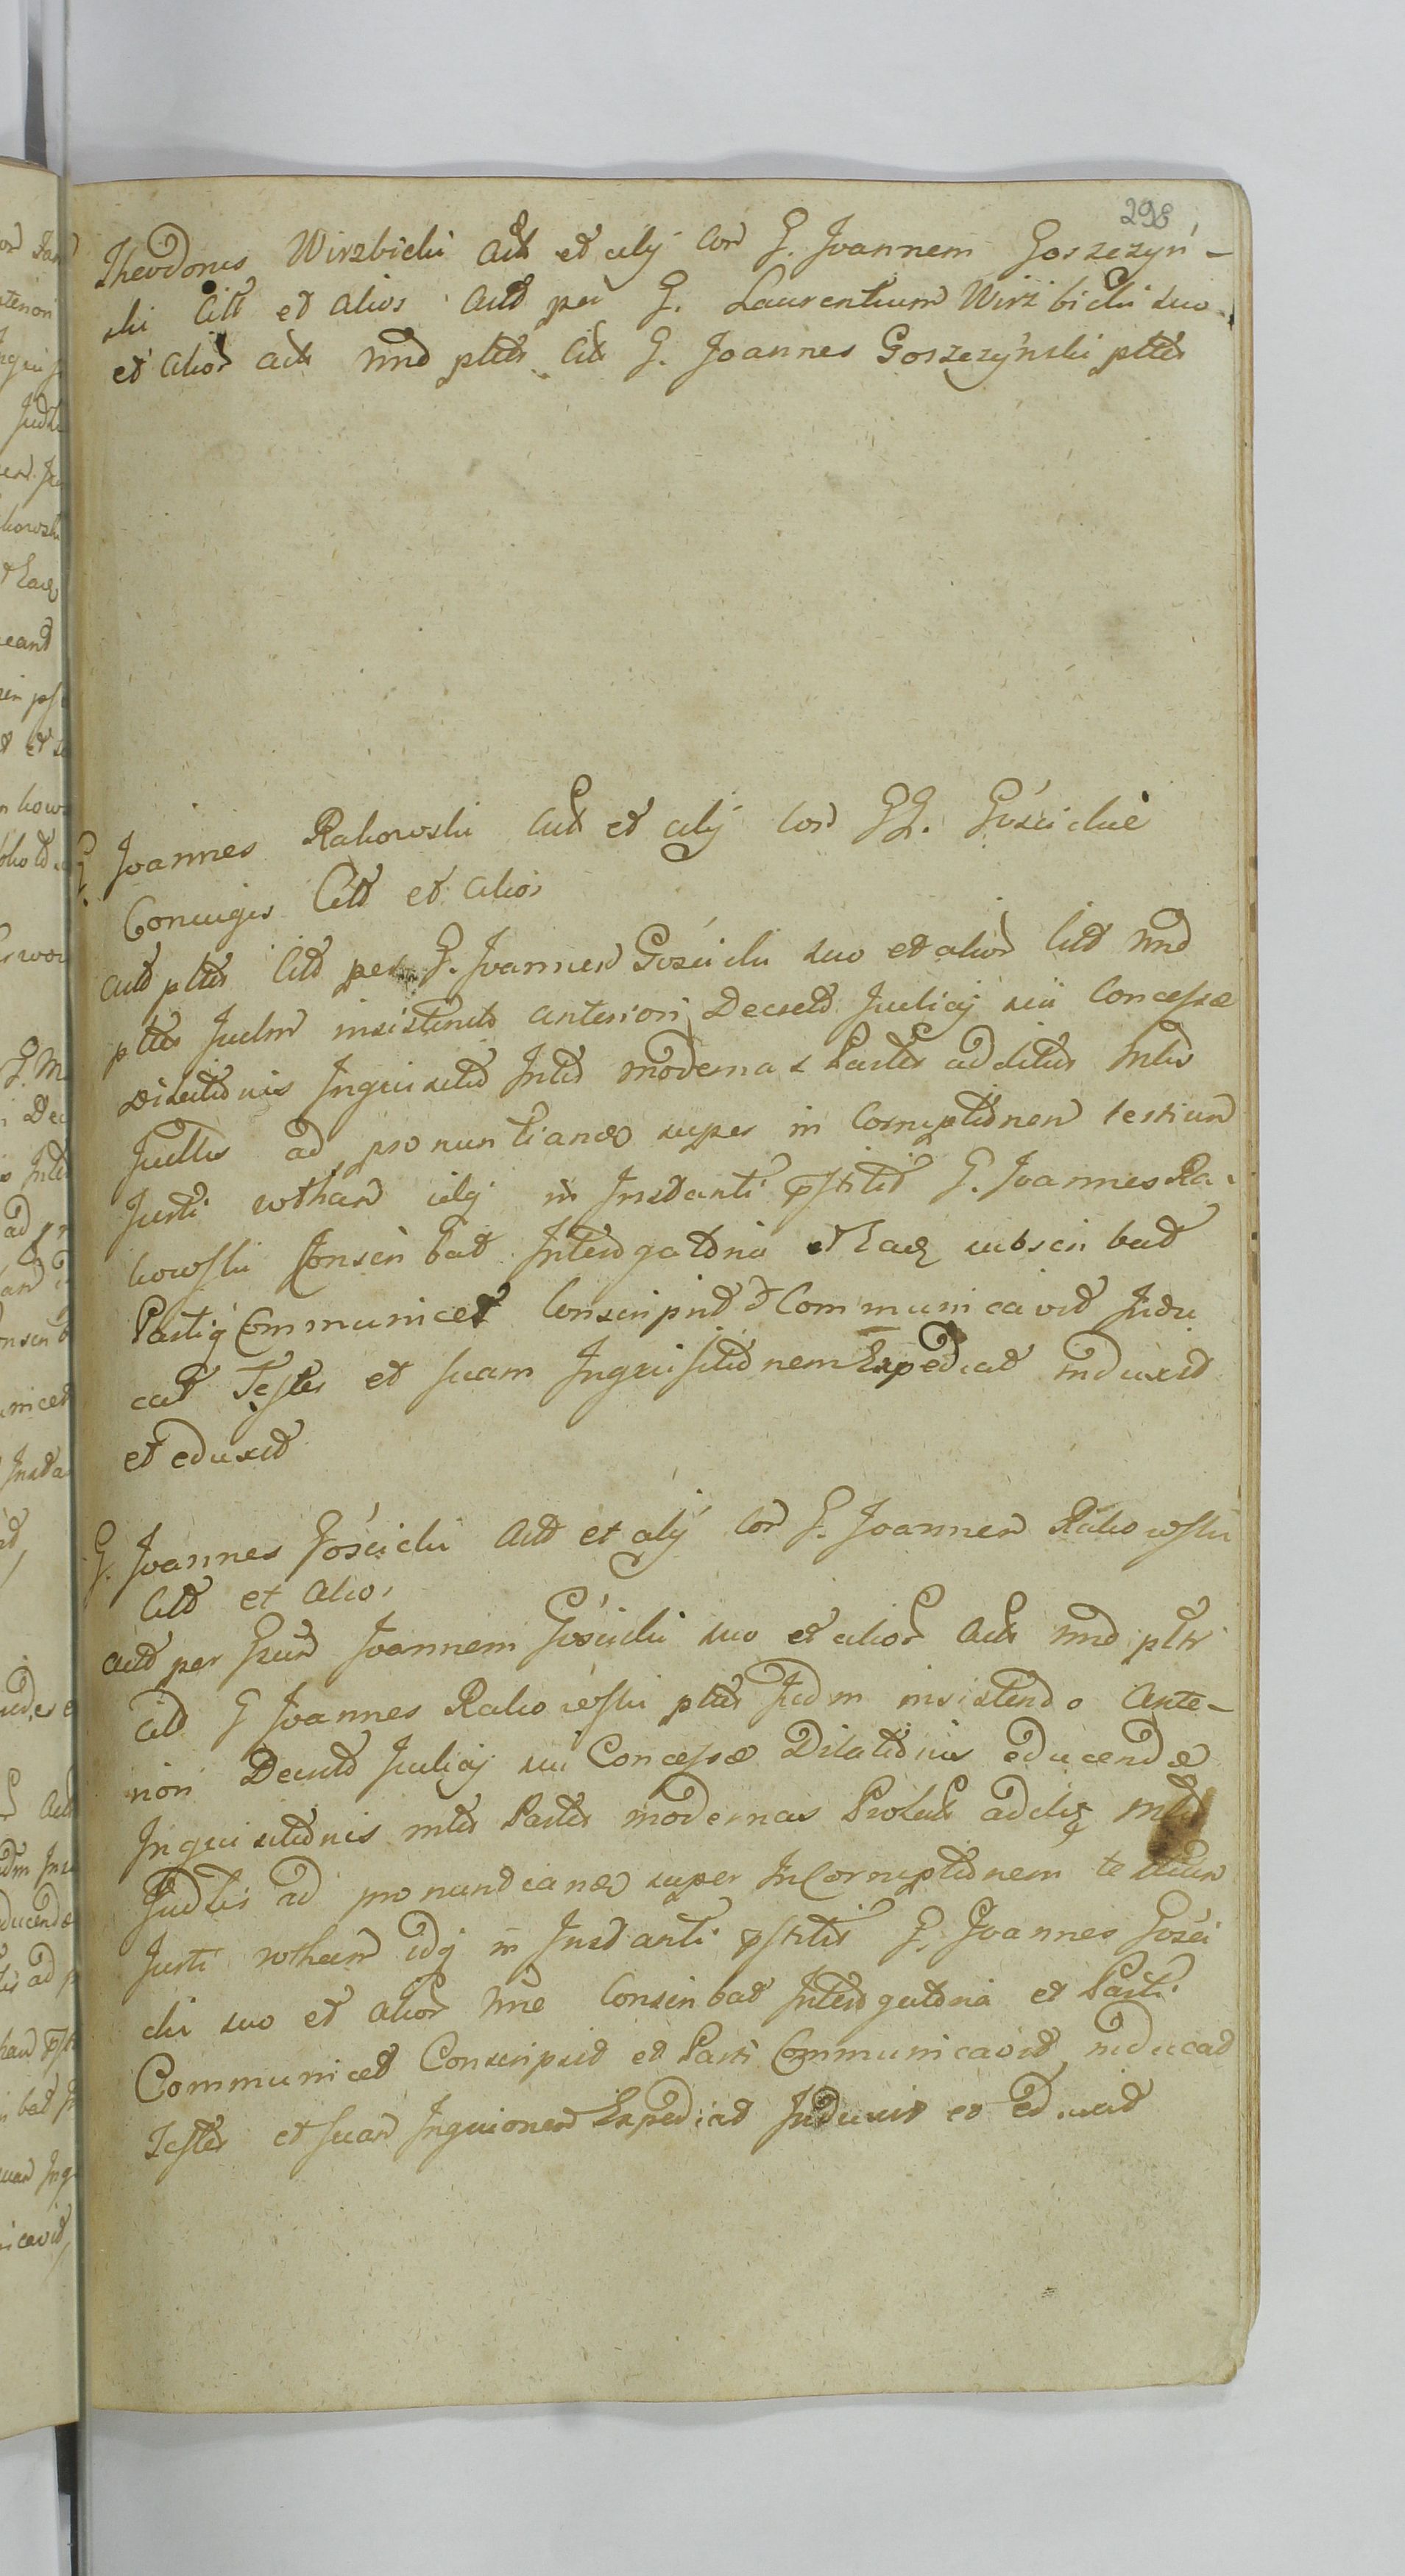 298
Theodorus Wirzbicki Act et alij Con G. Joannem Goszczyń-
ski Citt et alios Actt per G. Laurentium Wirzbicki suo
et alior actt nnd pltts Citt G. Joannes Goszczyński pltts
G. Joannes Rakowski Actt et alij Con GG. Gościckie
Coniuges Citt et alios
Actt pltts Citt per G. Joannem Gościcki suo et alior Citt nnd
pltts Judm insistendo anteriori Decreto Judicij sui Concessæ
Dilationis Inquisit Intt modernas Partes additus Intts
Judtis ad pronuntiand super in Corruptionem testium
Jurti rothand idq in Instanti pstitit G. Joannes Ra-
kowski Conscribat Interogatoria et Eadq subscribat
Partiq Communicet Conscripsit et Communicavit Indu
cat Testes et suam Inquisitionem Expediat induxit
et eduxit
G. Joannes Gościcki Actt et alij Con G. Joannem Rakowski
Citt et alios
Actt per Grsum Joannem Gościcki suo et alior Actt nnd pltr
Citt G Joannes Rakowski pltts Judm insistendo Ante-
riori Decreto Judicij sui Concessæ Dilationis educendæ
Inquisitionis intts Partes modernas Prolat additq Intts
Judtis ad pronuntiand super InCorruptionem testium
Jurti rothand idq in Instanti pstitit G. Joannes Gości
cki suo et alior nne Conscribat Interogatoria et Parti
Communicet Conscripsit et Parti Communicavit inducat
Testes et suam Inquionem Expediat Induxit et eduxit